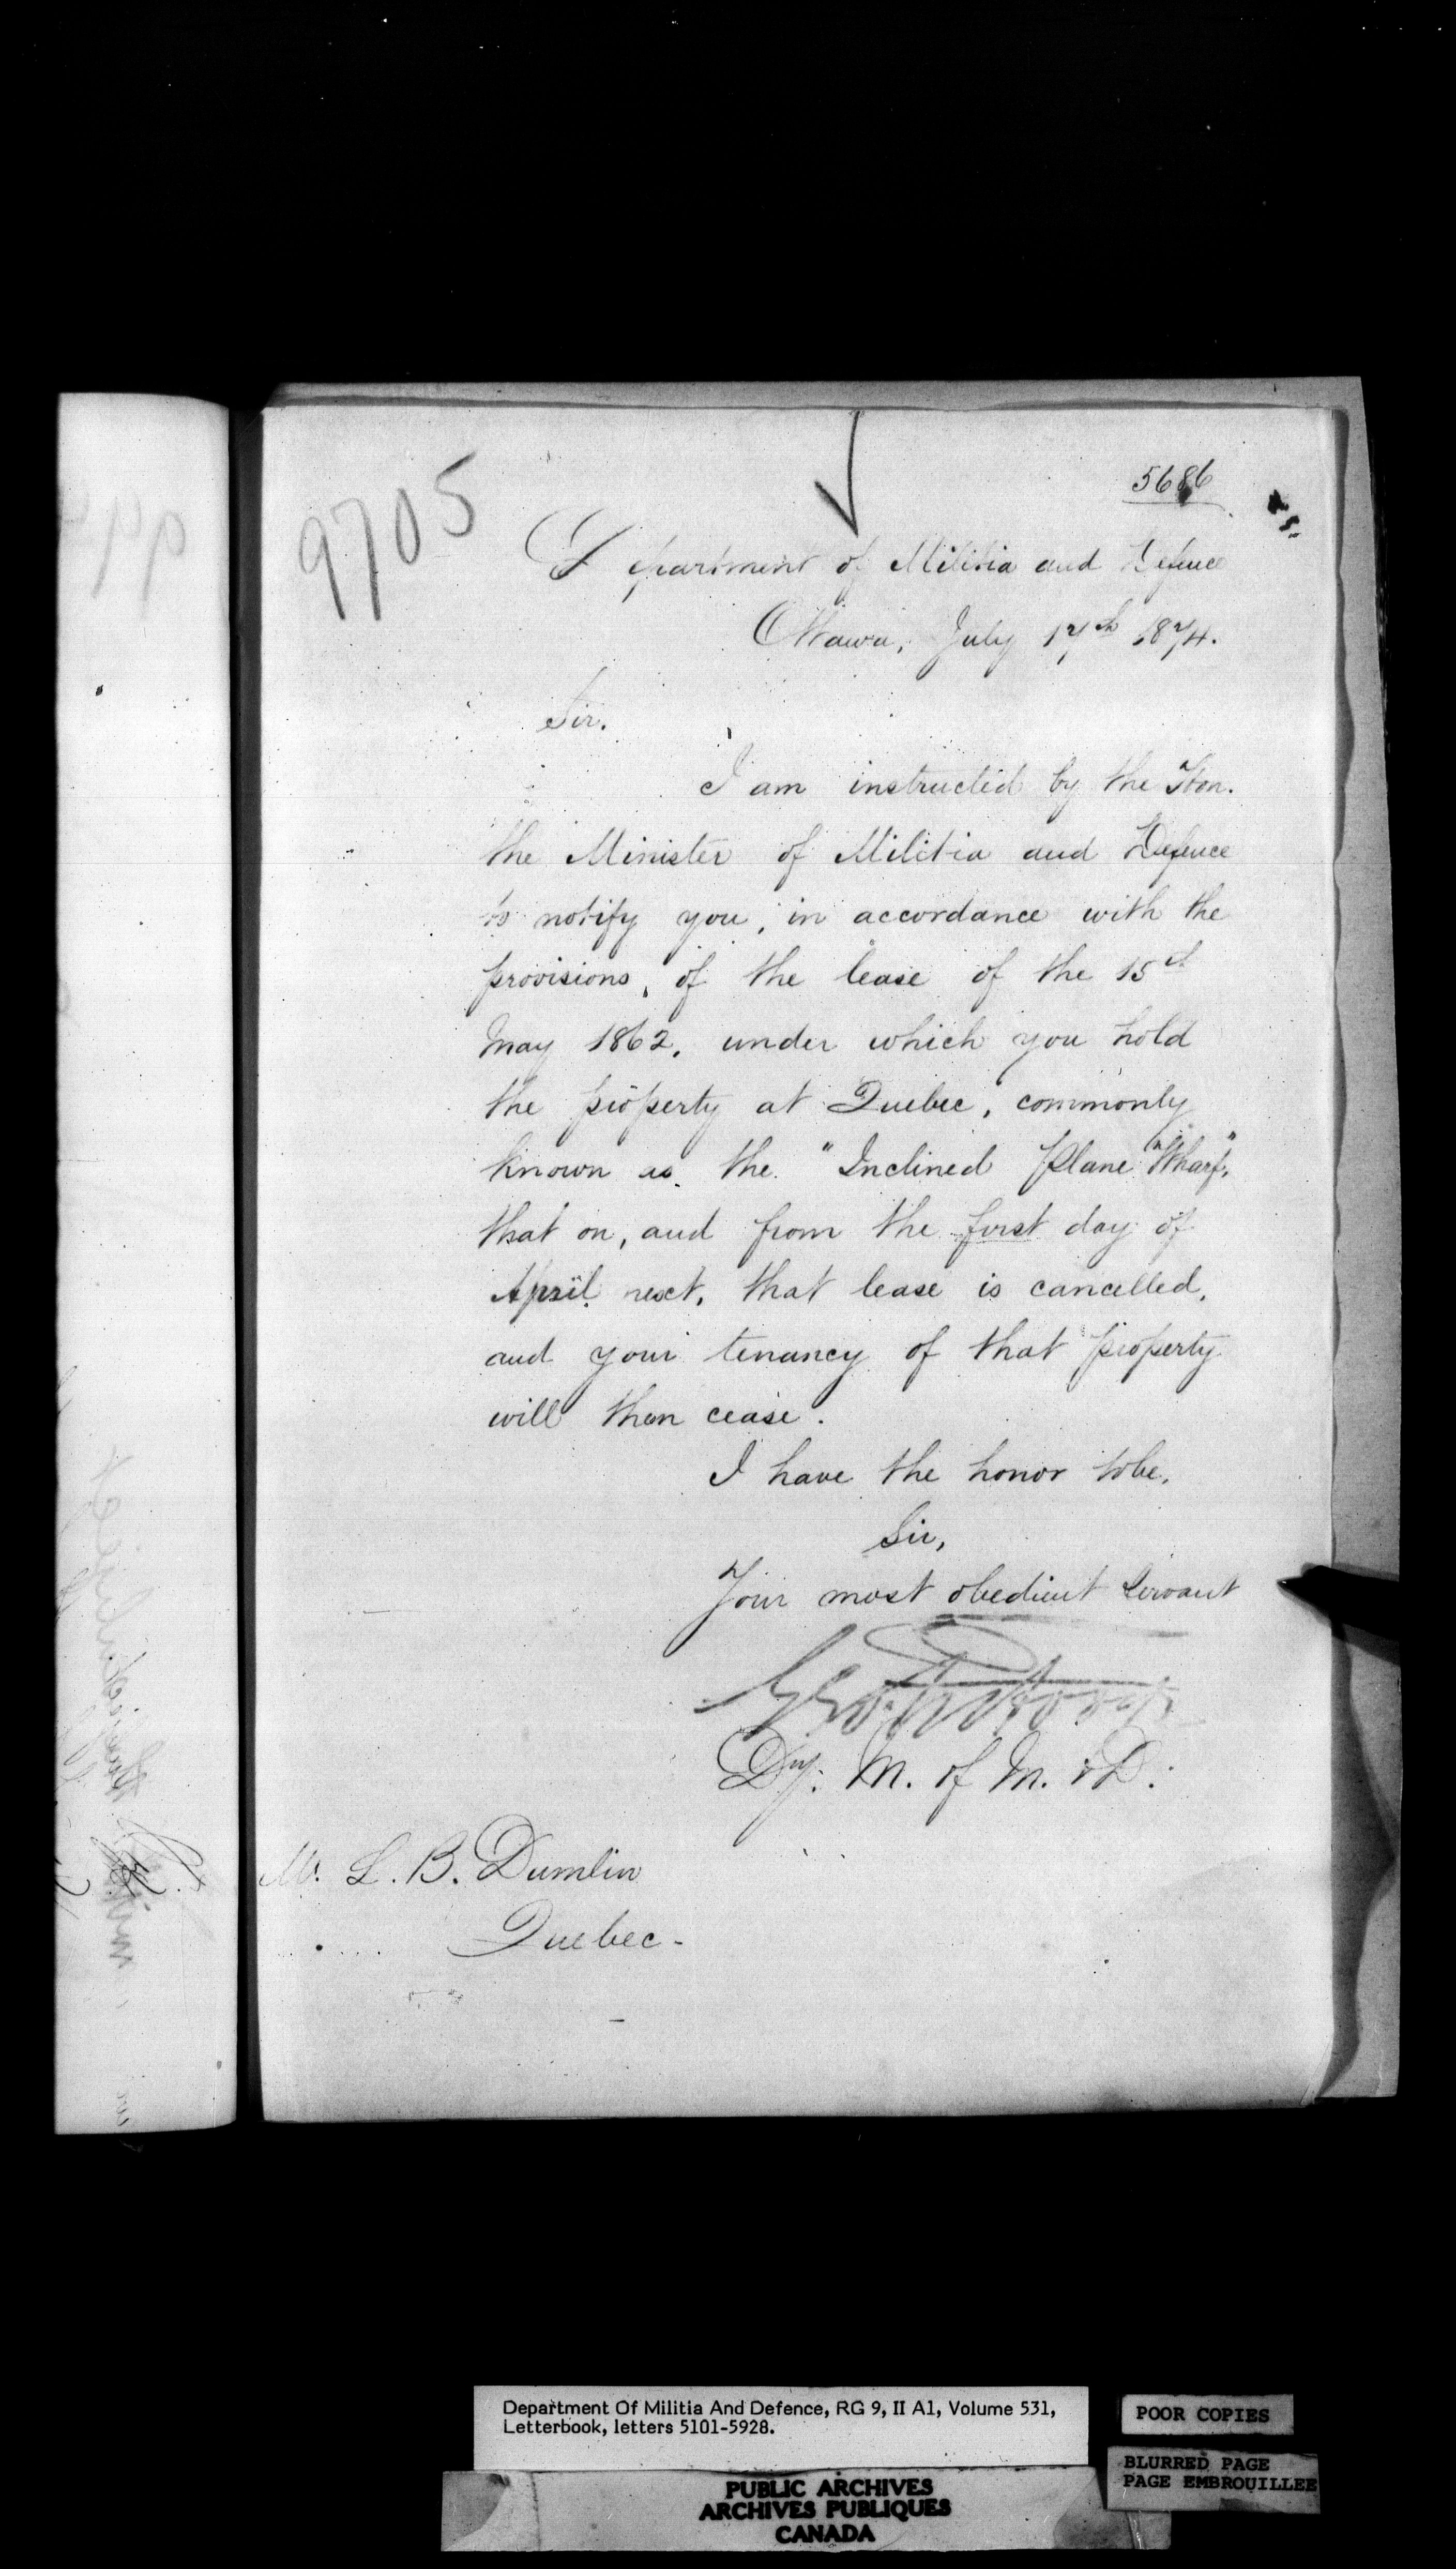 9705
5686
Department of Militia and Defence
Ottawa, July 17th 1874.
Sir.
I am instructed by the Hon.
the Minister of Militia and Defence
to notify you, in accordance with the
provisions, of the lease of the 15th
May 1862, under which you hold
the property at Quebec, commonly
known as the "Inclined Plane Wharf",
that on, and from the first day of
April next, that lease is cancelled,
and your tenancy of that property
will then cease.
I have the honor to be,
Sir,
Your most obedient Servant
Dy. M. of M. & D.
Mr. L. B. Dumlin
Quebec-
Department Of Militia And Defence, RG 9, II A1, Volume 531,
Letterbook, letters 5101-5928.
POOR COPIES
BLURRED PAGE
PAGE EMBROUILLEE
PUBLIC ARCHIVES
ARCHIVES PUBLIQUES
CANADA